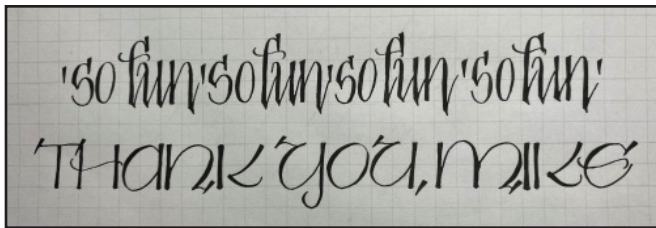 'so fun' so fun' so fun 'so fun'
THANK YOU, MIKE